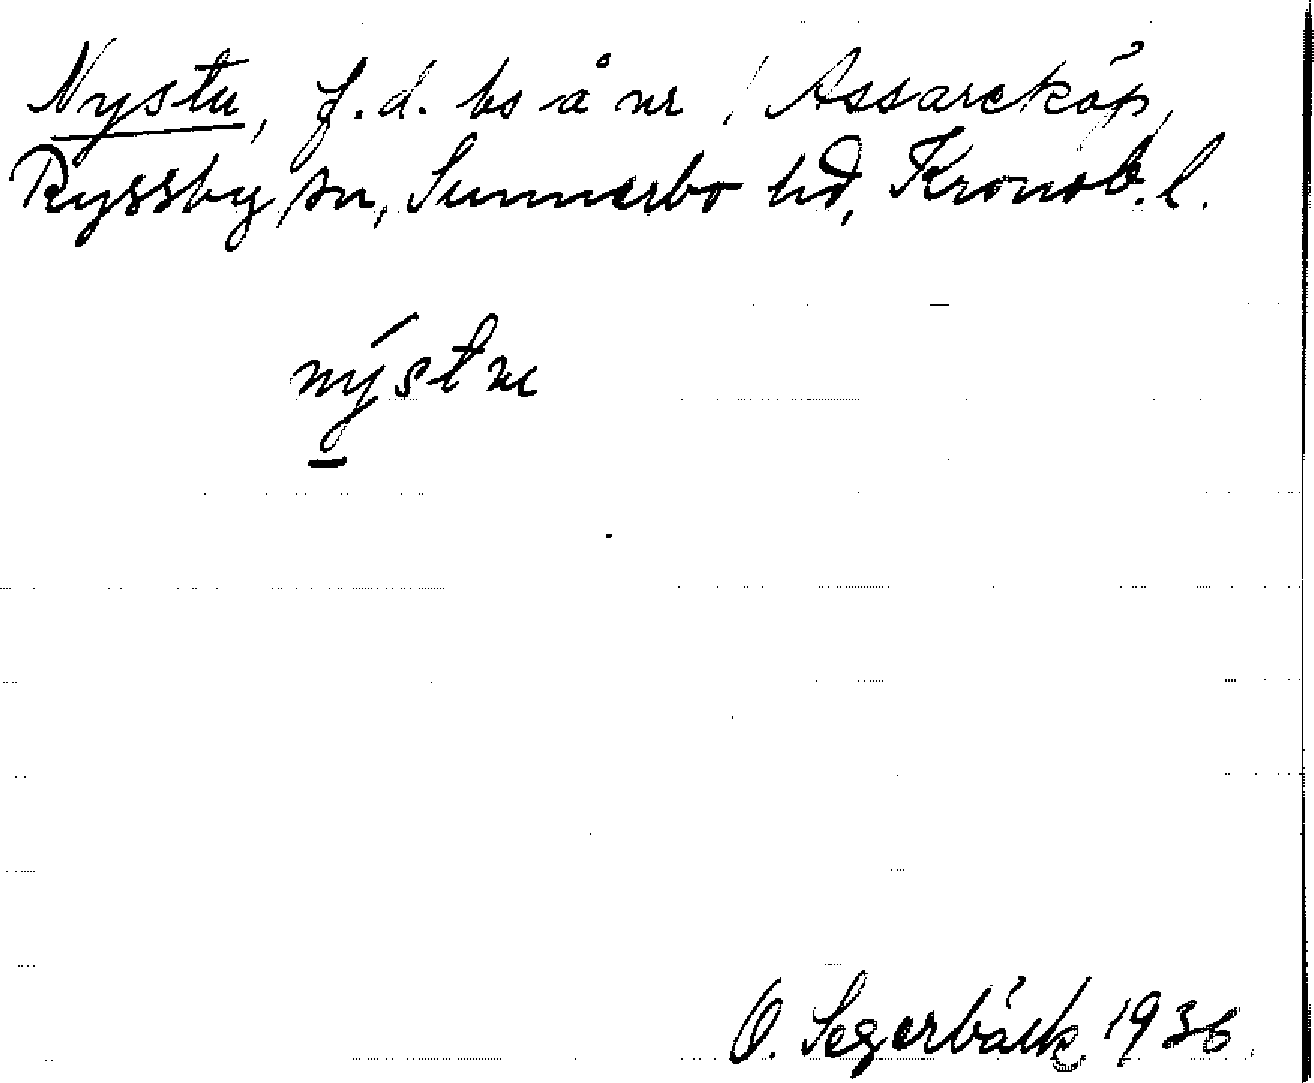 Nystu, f.d. bs å nr 1 Assareköp,
Ryssby sn, Sunnerbo hd, Kronob. l.
nýstu
O. Segerbäck 1936.